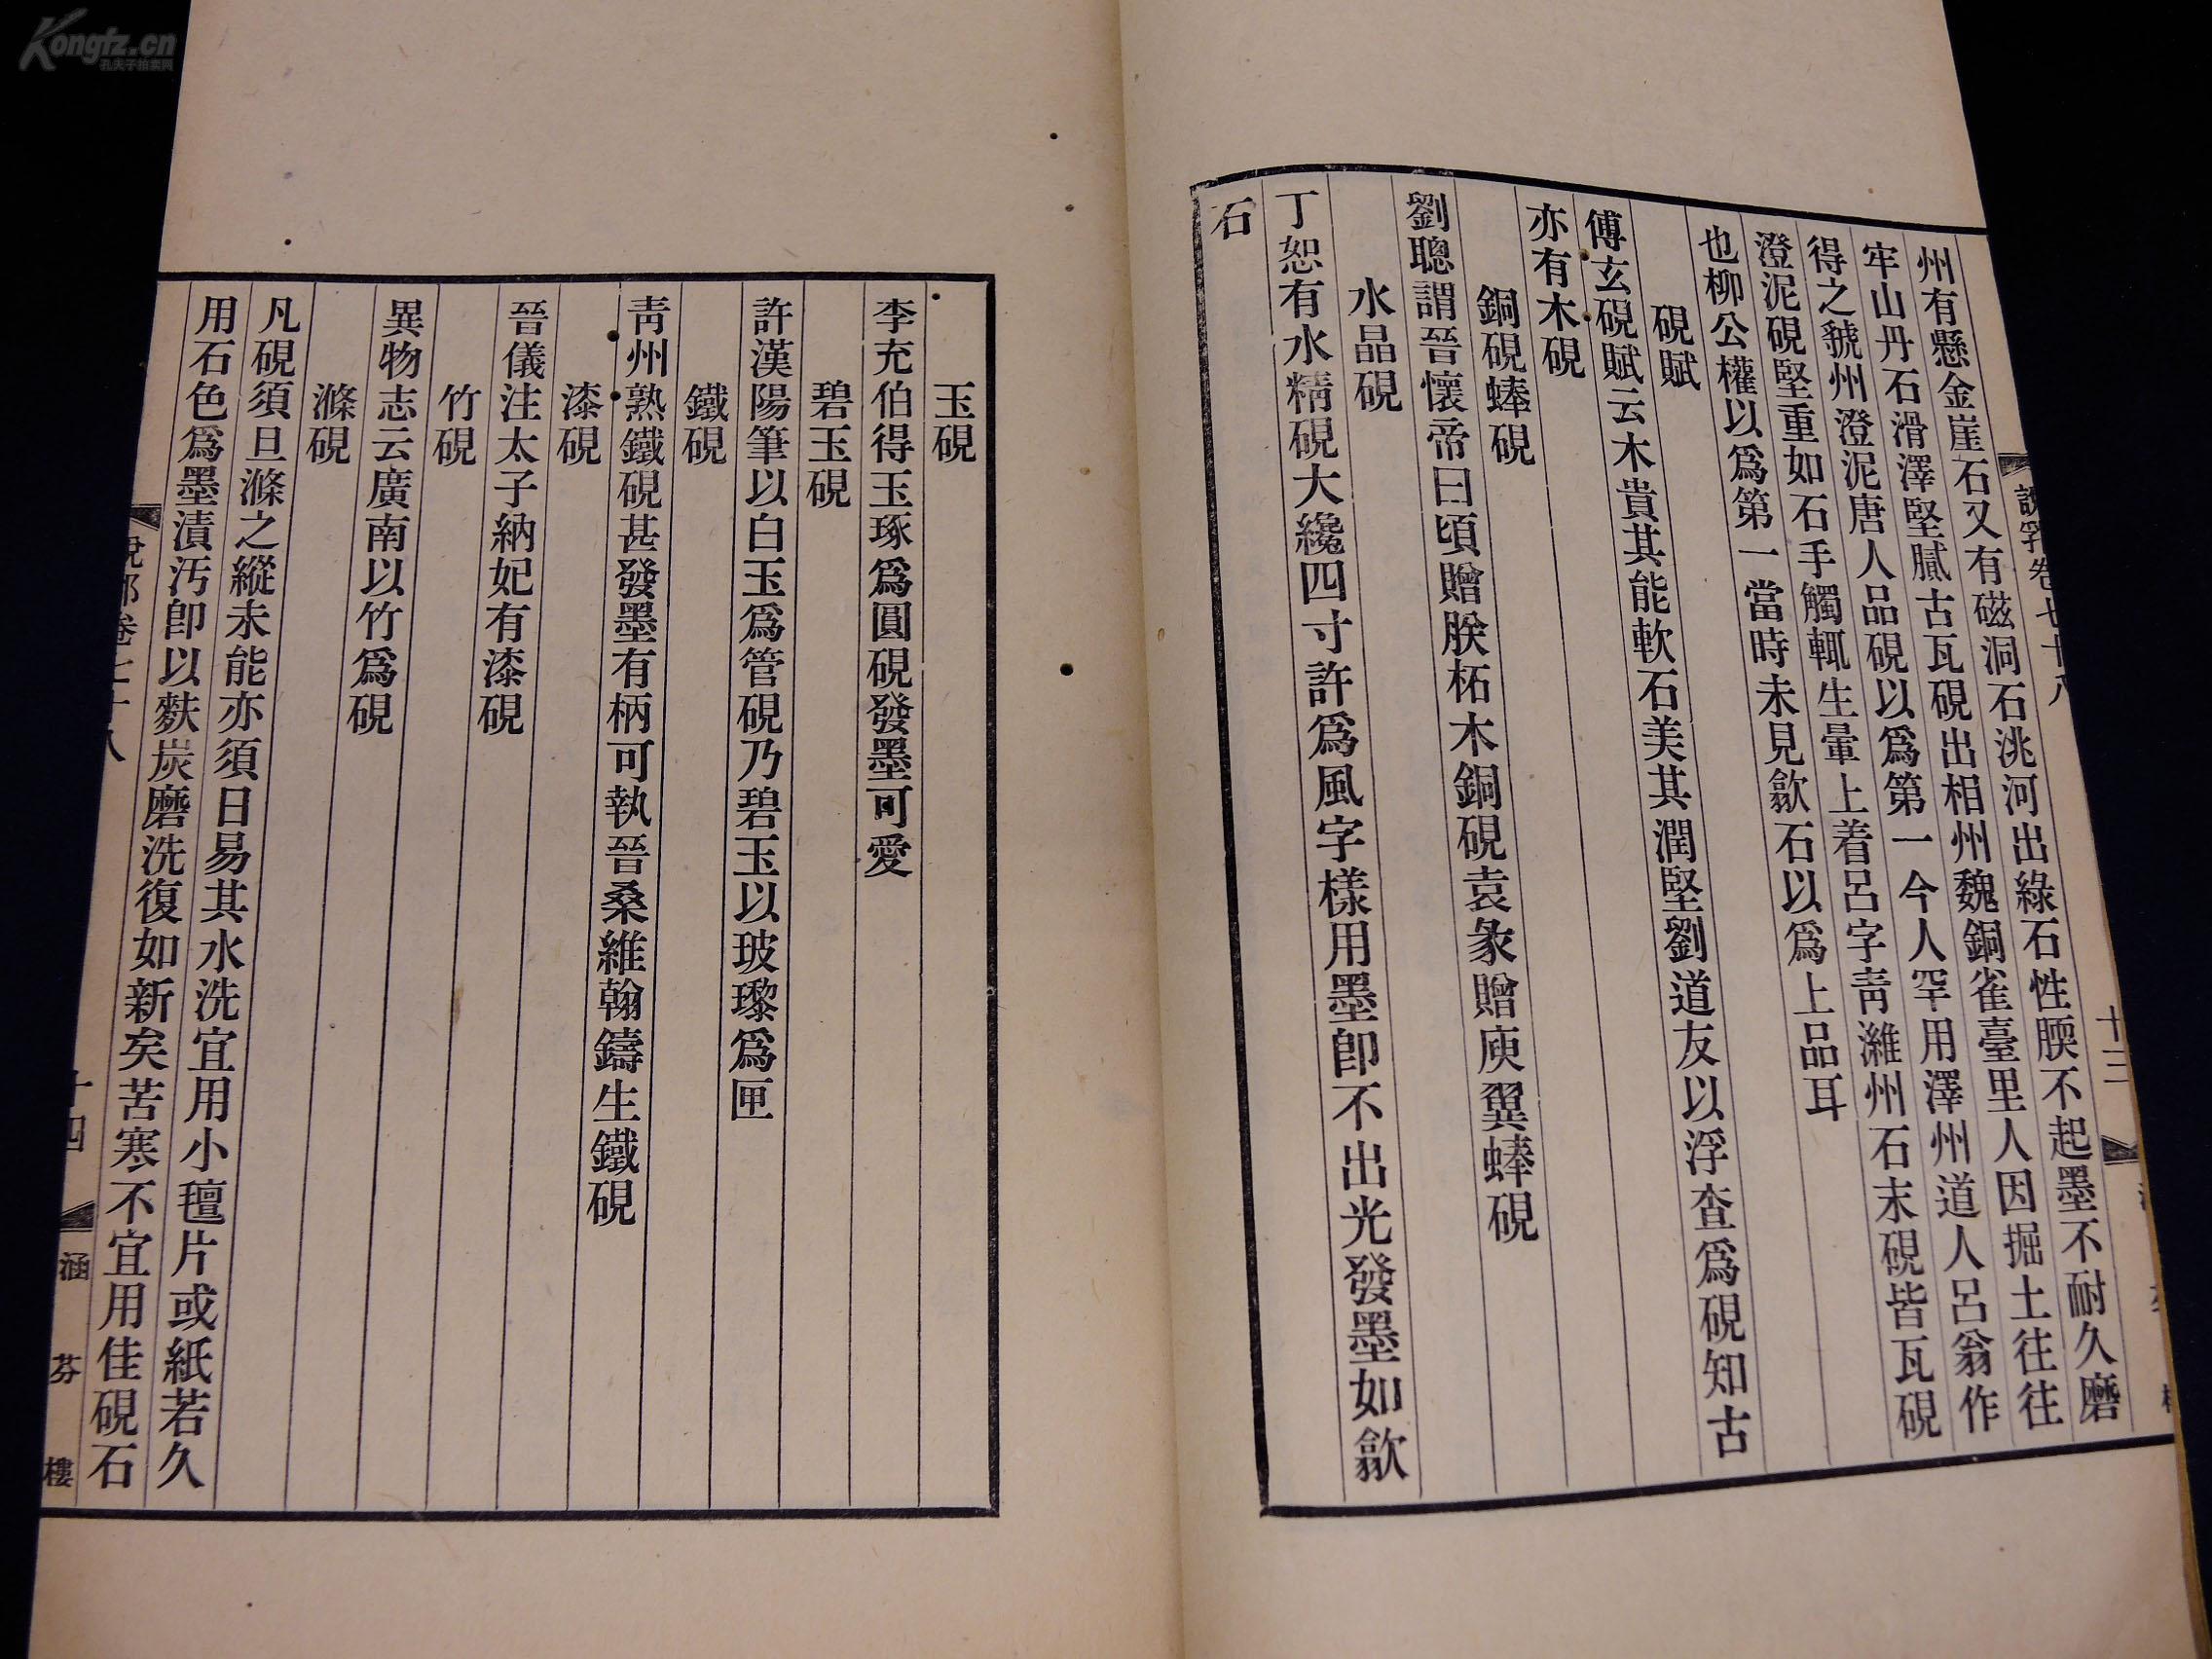 州有懸金崖石又有磁洞石洮河出綠石性腝不起墨不耐久磨
牢山丹石滑澤堅膩古瓦硯出相州魏銅雀臺里人因掘土往往
得之虢州澄泥唐人品硯以爲第一今人罕用澤州道人呂翁作
澄泥硯堅重如石手觸輒生暈上着呂字靑濰州石末硯皆瓦硯
也柳公權以爲第一當時未見歙石以爲上品耳
硯賦
傅玄硯賦云木貴其能軟石美其潤堅劉道友以浮查爲硯知古
亦有木硯
銅硯蜯硯
劉聰謂晉懷帝曰頃贈朕柘木銅硯袁彖贈庾翼蜯硯
水晶硯
丁恕有水精硯大纔四寸許爲風字樣用墨卽不出光發墨如歙
石
說郛卷七十八
十三
玉硯
李充伯得玉琢爲圓硯發墨可愛
碧玉硯
許漢陽筆以白玉爲管硯乃碧玉以玻瓈爲匣
鐵硯
靑州熟鐵硯甚發墨有柄可執晉桑維翰鑄生鐵硯
漆硯
晉儀注太子納妃有漆硯
竹硯
異物志云廣南以竹爲硯
滌硯
凡硯須旦滌之縱未能亦須日易其水洗宜用小氊片或紙若久
用石色爲墨漬汚卽以麩炭磨洗復如新矣苦寒不宜用佳硯石
說郛卷七十八
十四
涵芬樓
Kongfz.cn
孔夫子拍卖网